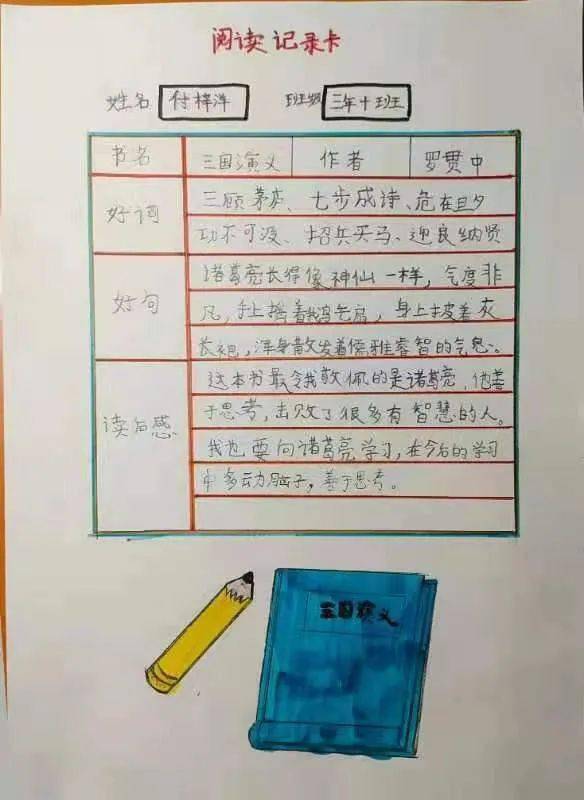 阅读记录卡
姓名 付梓洋 班级 三年十班
书名 三国演义 作者 罗贯中
好词 三顾茅庐、七步成诗、危在旦夕
功不可没、招兵买马、迎良纳贤
好句 诸葛亮长得像神仙一样，气度非
凡，手上摇着鹅毛扇，身上披着灰
长袍，浑身散发着儒雅睿智的气息。
读后感 这本书最令我敬佩的是诸葛亮，他善
于思考，击败了很多有智慧的人。
我也要向诸葛亮学习，在今后的学习
中多动脑子，善于思考。
三国演义